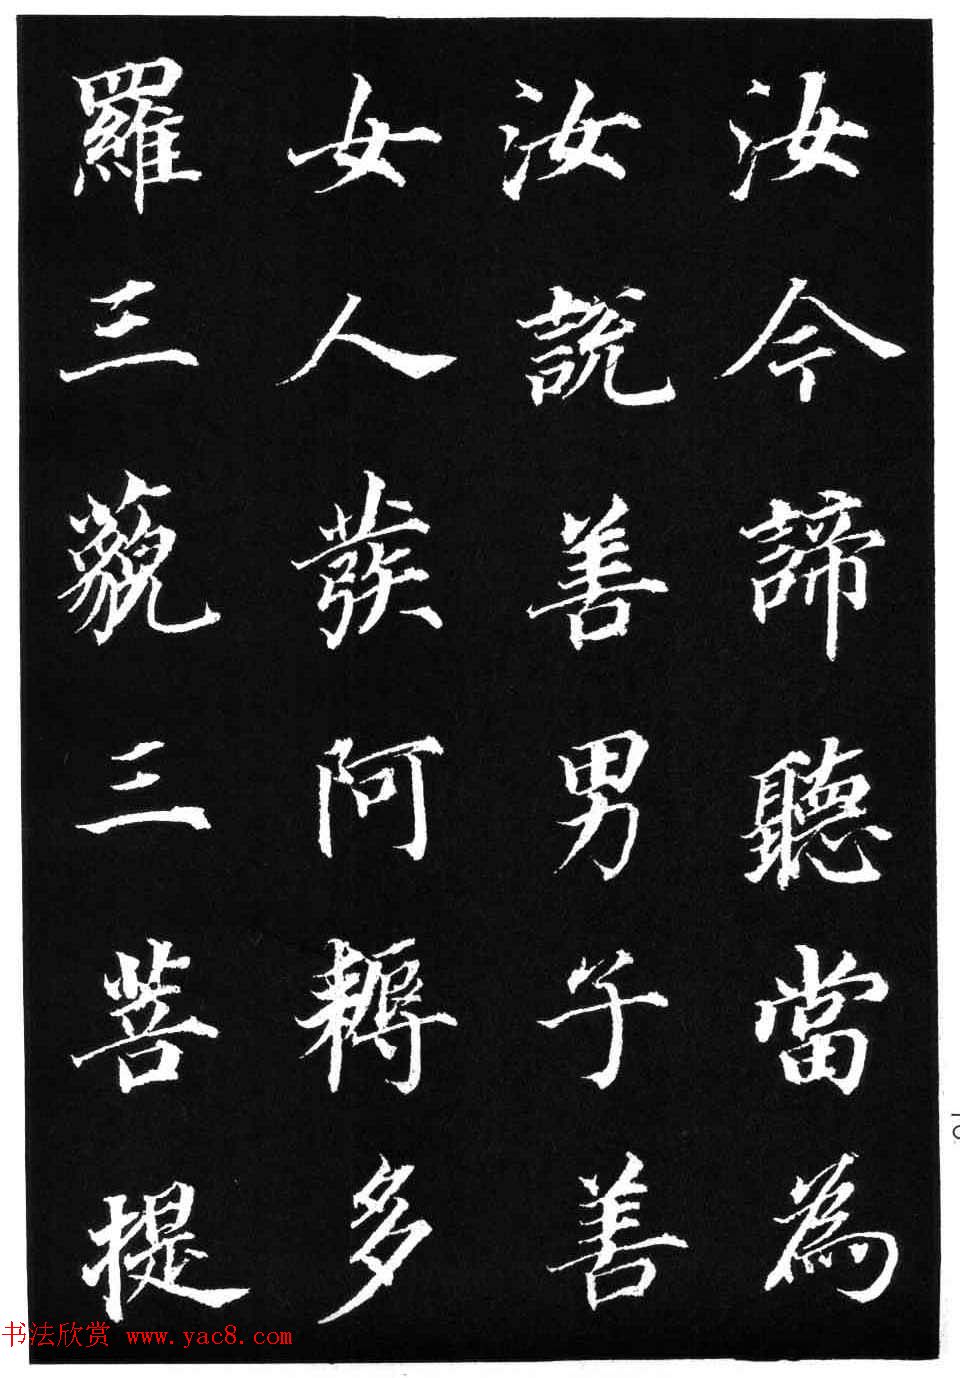 汝今諦聽當為
汝說善男子善
女人發阿耨多
羅三藐三菩提
一〇
书法欣赏 www.yac8.com